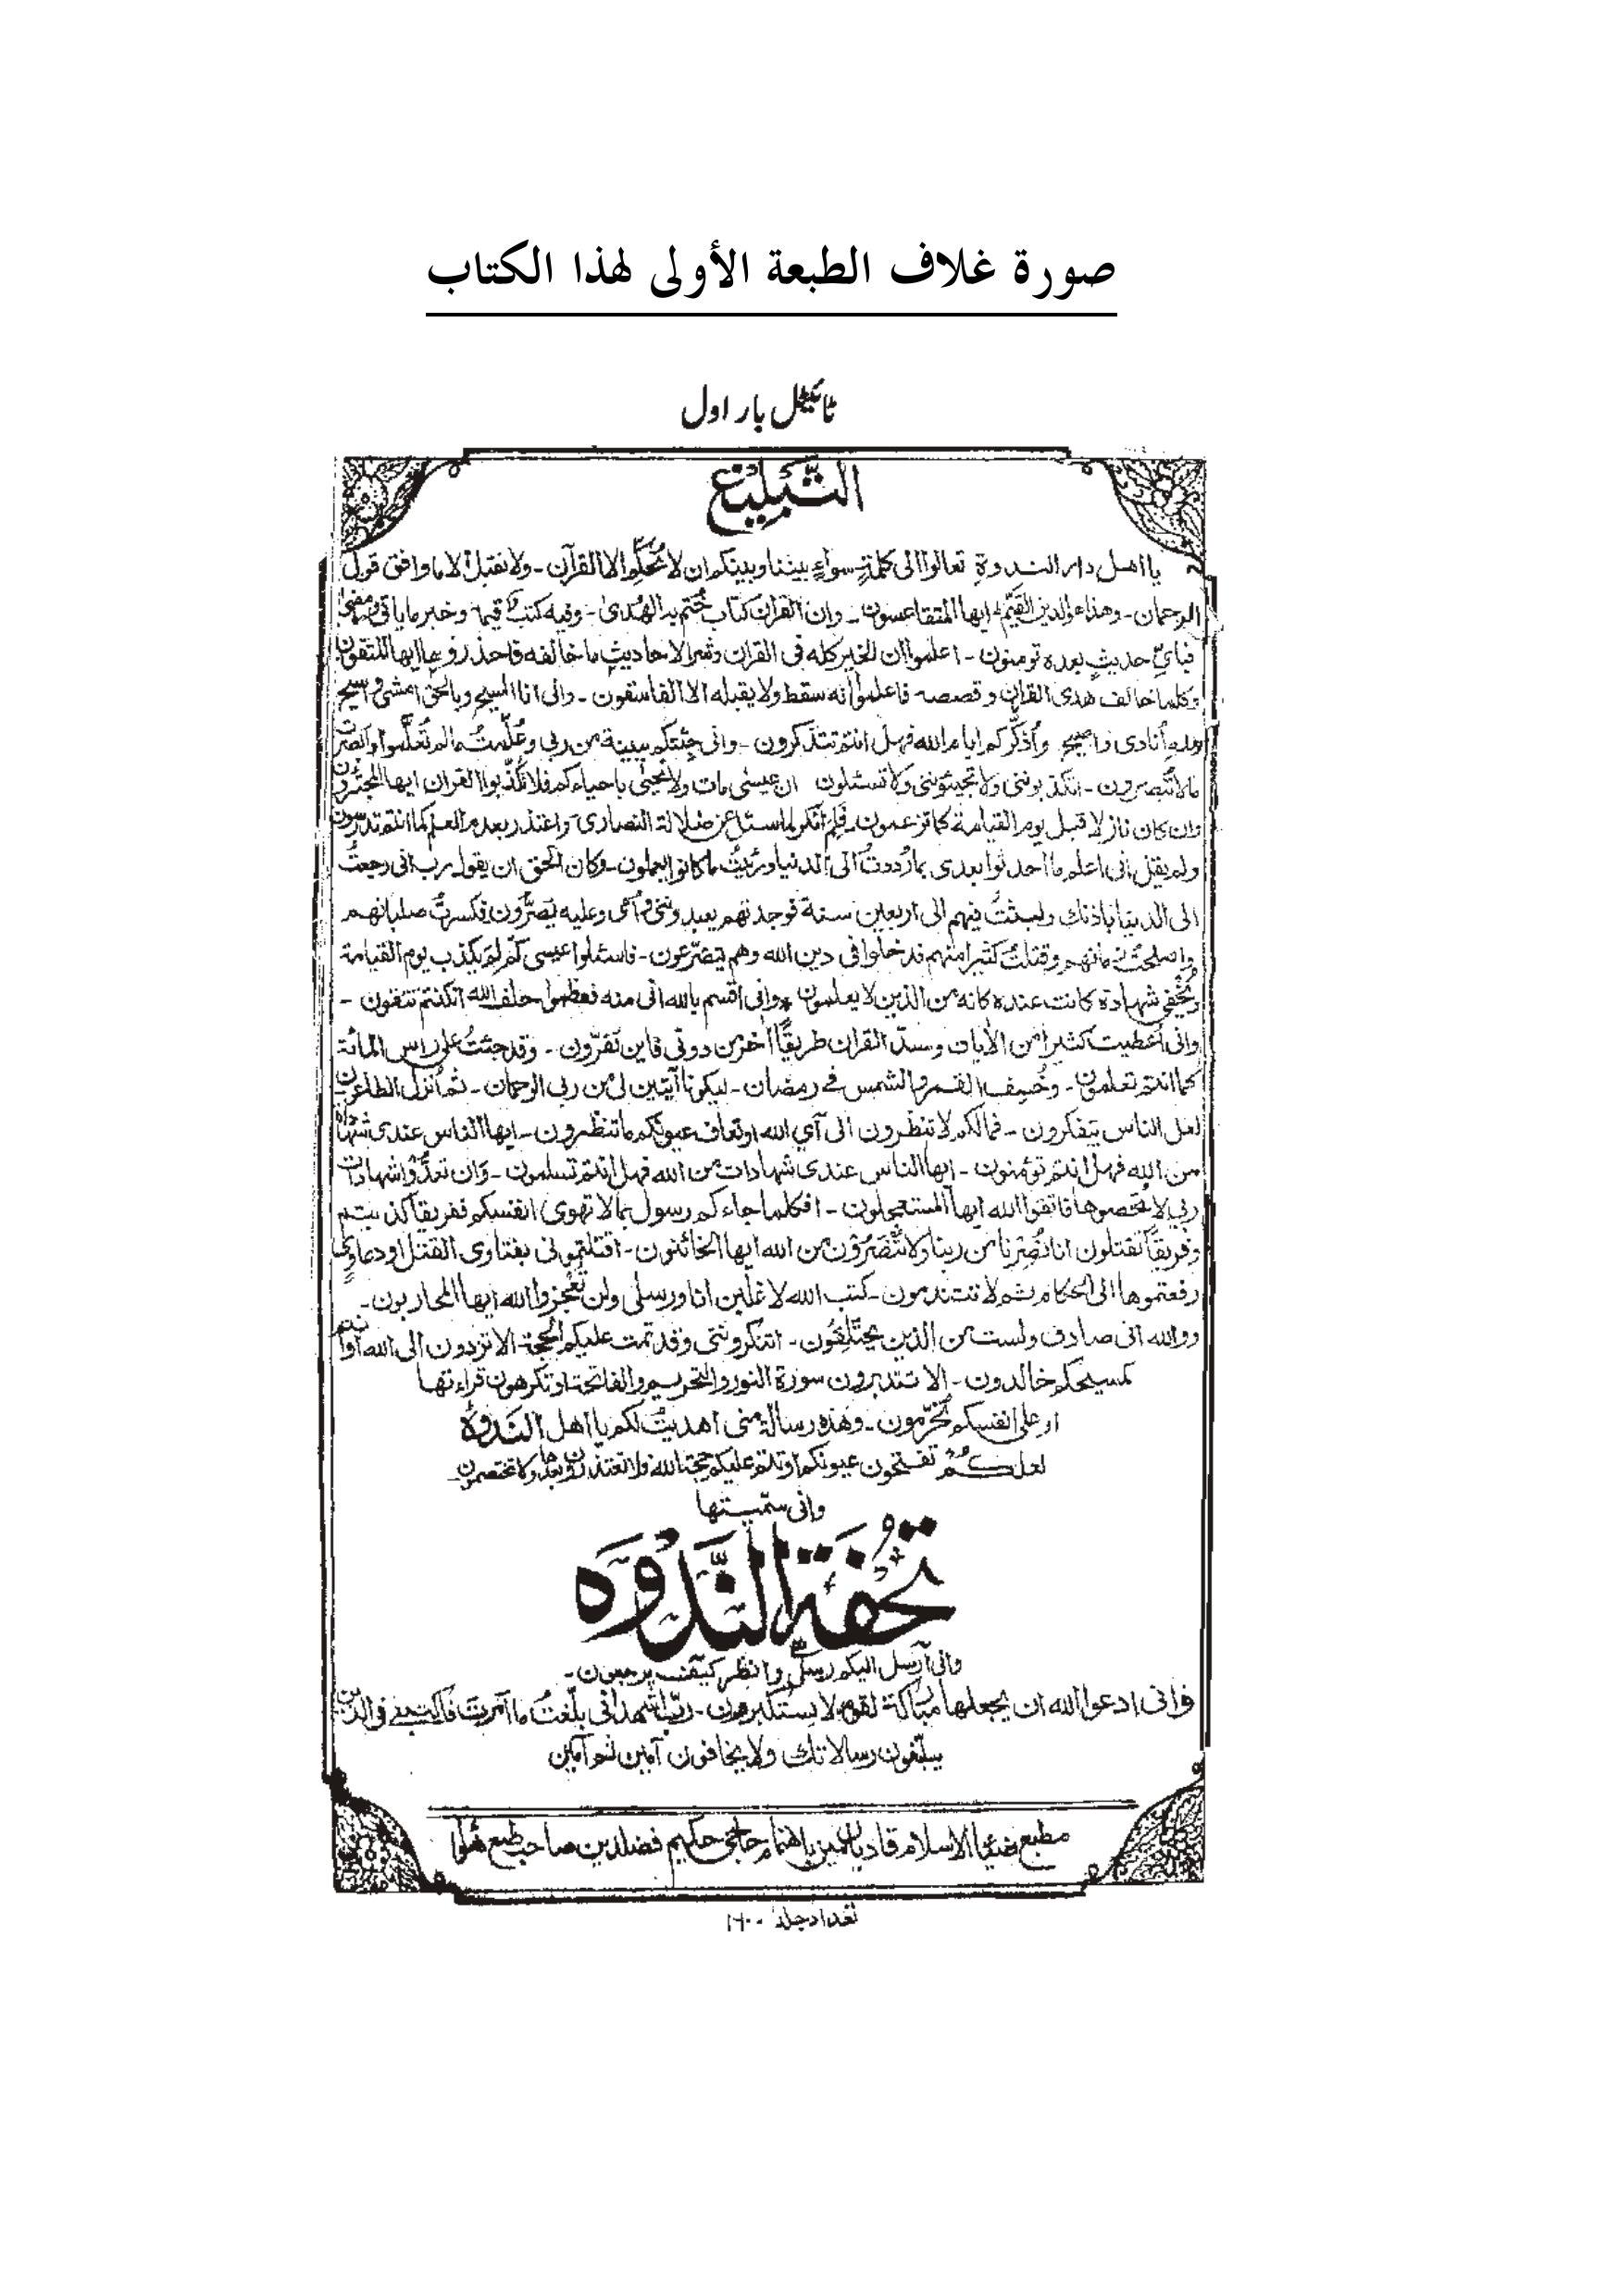 صورة غلاف الطبعة الأولى لهذا الكتاب
ٹائیٹل بار اول
التَّبليغ
يا اهل دار الندوة تعالوا الى كلمةٍ سواءٍ بيننا وبينكم ان لا نُحكّم الا القرآن ـ ولا نقبل الا ما وافق قول
الرحمان ـ وهذا هو الدين القيّم ايها المتقاعسون ـ وان القرآن كتاب خُتم به الهُدىٰ ـ وفيه كتب قيمة وخبر ما يأتى وما مضىٰ
فبأيّ حديثٍ بعده تؤمنون ـ اعلموا ان الخير كله فى القران وشر الاحاديث ما خالفه فاحذروها ايها المتقون
وكلما خالف هدى القران وقصصه فاعلموا أنه سقط ولا يقبله الا الفاسقون ـ وانى انا المسيح وبالحق امشى واسيح
ولله أنادى واصيح وأذكّركم ايام الله فهل انتم تتذكرون ـ وانى جئتكم ببينة من ربى وعُلّمتُ ما لم تُعلَّموا وابصرت
ما لا تُبصرون ـ اتكذبوننى ولا تجيئوننى ولا تسئلون ان عيسٰى مات ولا يحيٰى باحياءكم فلا تُكذّبوا القران ايها المجترءون
وان كان نازلا قبل يوم القيامة كما تزعمون ـ فلِمَ انكر لما سئل عن ضلالة النصارى واعتذر بعدم العلم كما انتم تدرسون
ولم يقل انى اعلم ما احدثوا بعدى بما رُددتُ الى الدنيا ورئيتُ ما كانوا يعملون ـ وكان الحق ان يقول رب انى رجعتُ
الى الدنيا باذنك ولبثتُ فيهم الى اربعين سنة فوجدتهم يعبدوننى وأمّى وعليه يُصرّون فكسرتُ صلبانهم
واصلحتُ زمانهم وقتلتُ كثيرا منهم فدخلوا فى دين الله وهم يتضرّعون ـ فاسئلوا عيسى لِمَ يكذب يوم القيامة
ويُخفى شهادة كانت عنده كانه من الذين لا يعلمون وانى اقسم بالله انى منه فعظموا حلف الله ان كنتم تتقون ـ
وانى أُعطيت كثيرا من الأيات وسدّ القران طريقًا اخر من دونى فاين تفرّون ـ وقد جئتُ على راس المائة
كما انتم تعلمون ـ وخُسف القمر والشمس فى رمضان ـ ليكونا آيتين لى من ربى الرحمان ـ ثم أُنزل الطاعون
لعل الناس يتفكرون ـ فما لكم لا تنظرون الى آي الله او تعاف عيونكم ما تنظرون ـ ايها الناس عندى شهادات
من الله فهل انتم تؤمنون ـ ايها الناس عندى شهادات من الله فهل انتم تسلمون ـ وان تعدُّوا شهادات
ربى لا تُحصوها فاتقوا الله ايها المستعجلون ـ افكلما جاءكم رسول بما لا تهوى انفسكم ففريقًا كذبتم
وفريقًا تقتلون انا نُصرنا من ربنا ولا تُنصَرون من الله ايها الخائنون ـ اقتلتمونى بفتاوى القتل او دعاوى
رفعتموها الى الحكام ثم لا تتندمون ـ كتب الله لاغلبن انا ورسلى ولن تُعجزوا الله ايها المحاربون ـ
ووالله انى صادق ولست من الذين يختلقون ـ اتنكروننى وقد تمت عليكم الحجة الا تردون الى الله او انتم
كمسيحكم خالدون ـ الا تتدبرون سورة النور والتحريم والفاتحة او تكرهون قراءتها
او على انفسكم تُحرّمون ـ وهذه رسالة منى اهديتُ لكم يا اهل النَدوة
لعلكم تفتحون عيونكم او تتم عليكم حجة الله فلا تعتذرون بعدها ولا تختصمون
وانى سمّيتها
تُحفة النَّدْوَه
وانى أرسل اليكم رسلى وانظر كيف يرجعون ـ
وانى ادعوا الله ان يجعلها مباركة لقوم لا يستكبرون ـ ربّ اشهد انى بلّغتُ ما أُمرتُ فاكتبنى فى الذين
يبلّغون رسالاتك ولا يخافون آمين ثم آمين
مطبع ضیاء الاسلام قادیان میں باہتمام حاجی حکیم فضلدین صاحب طبع ہوا
تعداد جلد